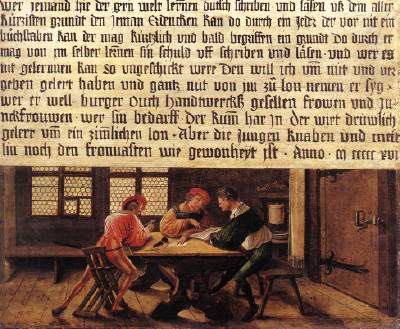 wer jemand hie der gern welt lernen dutsch schriben und läsen uß dem aller
kürtzisten grundt den jeman Erdencken kan do durch ein jeder der vor nit ein
büchstaben kan der mag kürtzlich und bald begriffen ein grundt do durch er
mag von jm selber lernen sin schuld uff schriben und läsen und wer es
nit gelernnen kan so ungeschickt were Den will ich um nüt und ver
geben gelert haben und gantz nüt von jm zu lon nemen er syg
wer er well burger Ouch handtwercks gesellen frowen und ju
nckfrouwen wer sin bedarff der kum har in der wirt drüwlich
gelert um ein zimlichen lon Aber die jungen knaben und meit
lin noch den fronuasten wie gewonheyt ist Anno m ccccc xvi